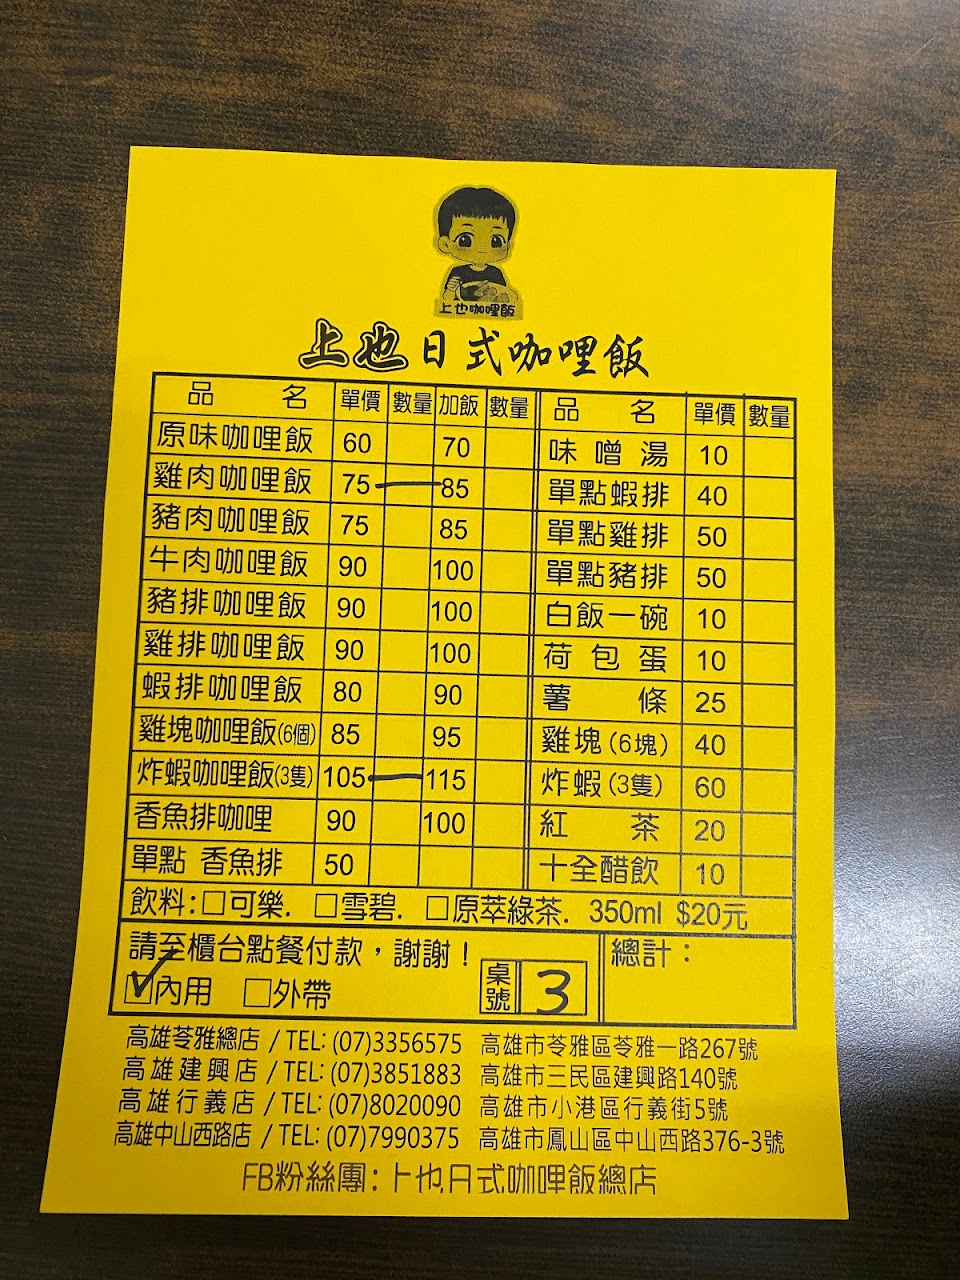 上也咖哩飯
上也日式咖哩飯
品 名 單價 數量 加飯 數量 品 名 單價 數量
原味咖哩飯 60 70 味噌湯 10
雞肉咖哩飯 75 一 85 單點蝦排 40
豬肉咖哩飯 75 85 單點雞排 50
牛肉咖哩飯 90 100 單點豬排 50
豬排咖哩飯 90 100 白飯一碗 10
雞排咖哩飯 90 100 荷包蛋 10
蝦排咖哩飯 80 90 薯條 25
雞塊咖哩飯(6個) 85 95 雞塊(6塊) 40
炸蝦咖哩飯(3隻) 105 一 115 炸蝦(3隻) 60
香魚排咖哩 90 100 紅茶 20
單點 香魚排 50 十全醋飲 10
飲料:□可樂. □雪碧. □原萃綠茶. 350ml $20元
請至櫃台點餐付款，謝謝！ 總計：
☑內用 □外帶 桌號 3
高雄苓雅總店 / TEL: (07)3356575 高雄市苓雅區苓雅一路267號
高雄建興店 / TEL: (07)3851883 高雄市三民區建興路140號
高雄行義店 / TEL: (07)8020090 高雄市小港區行義街5號
高雄中山西路店 / TEL: (07)7990375 高雄市鳳山區中山西路376-3號
FB粉絲團:上也日式咖哩飯總店